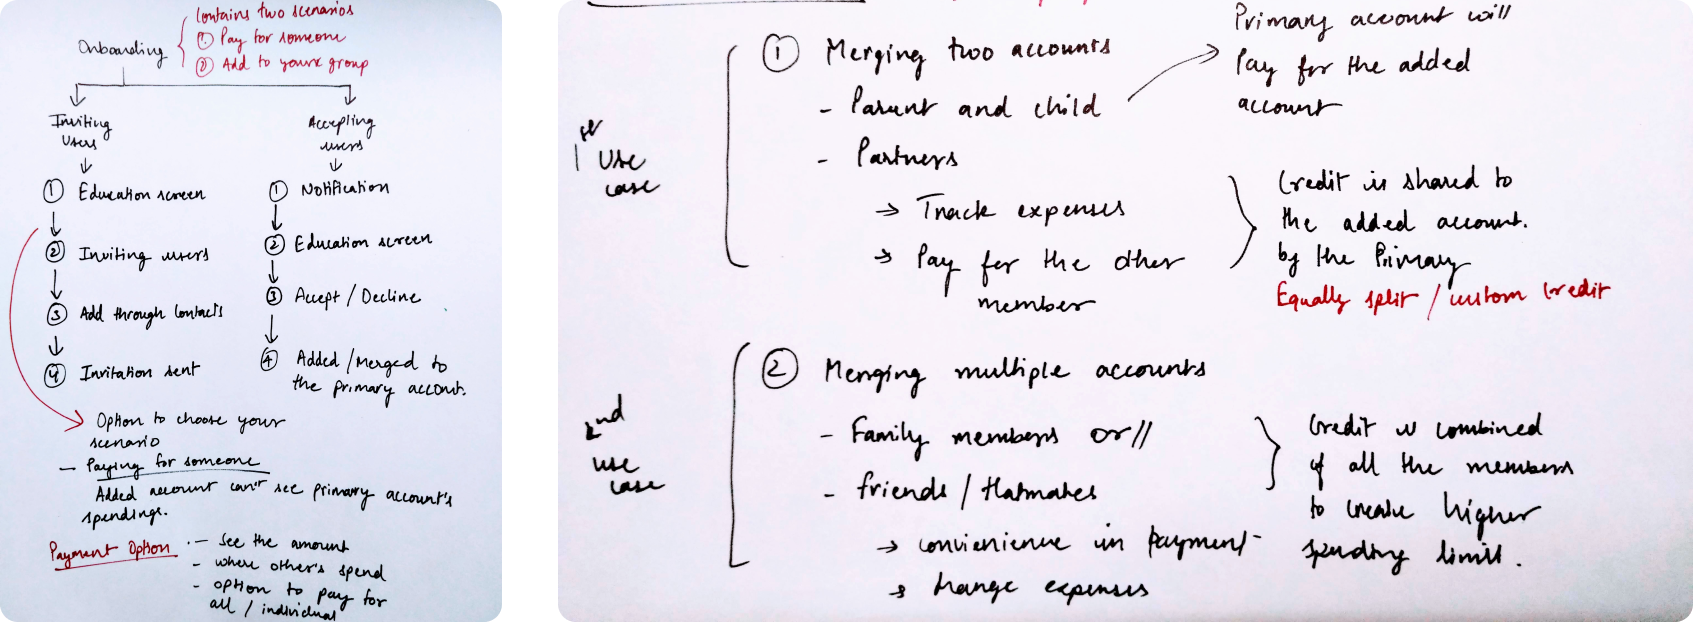 Contains two scenarios
① Pay for someone
② Add to your group
Onboarding
Inviting
Users
① Education screen
② Inviting users
③ Add through contacts
④ Invitation sent
Accepting
users
① Notification
② Education screen
③ Accept / Decline
④ Added / Merged to
the primary account.
Option to choose your
scenario
- Paying for someone
Added account can't see primary account's
spendings.
Payment Option
- see the amount
- where other's spend
- option to pay for
all / individual
1st Use
case
① Merging two accounts
- Parent and child
- Partners
→ Track expenses
→ Pay for the other
member
Primary account will
Pay for the added
account
Credit is shared to
the added account.
by the Primary
Equally split / custom credit
2nd
use
case
② Merging multiple accounts
- Family members or //
- friends / flatmates
→ convienience in payment
→ Manage expenses
Credit is combined
of all the members
to create higher
spending limit.